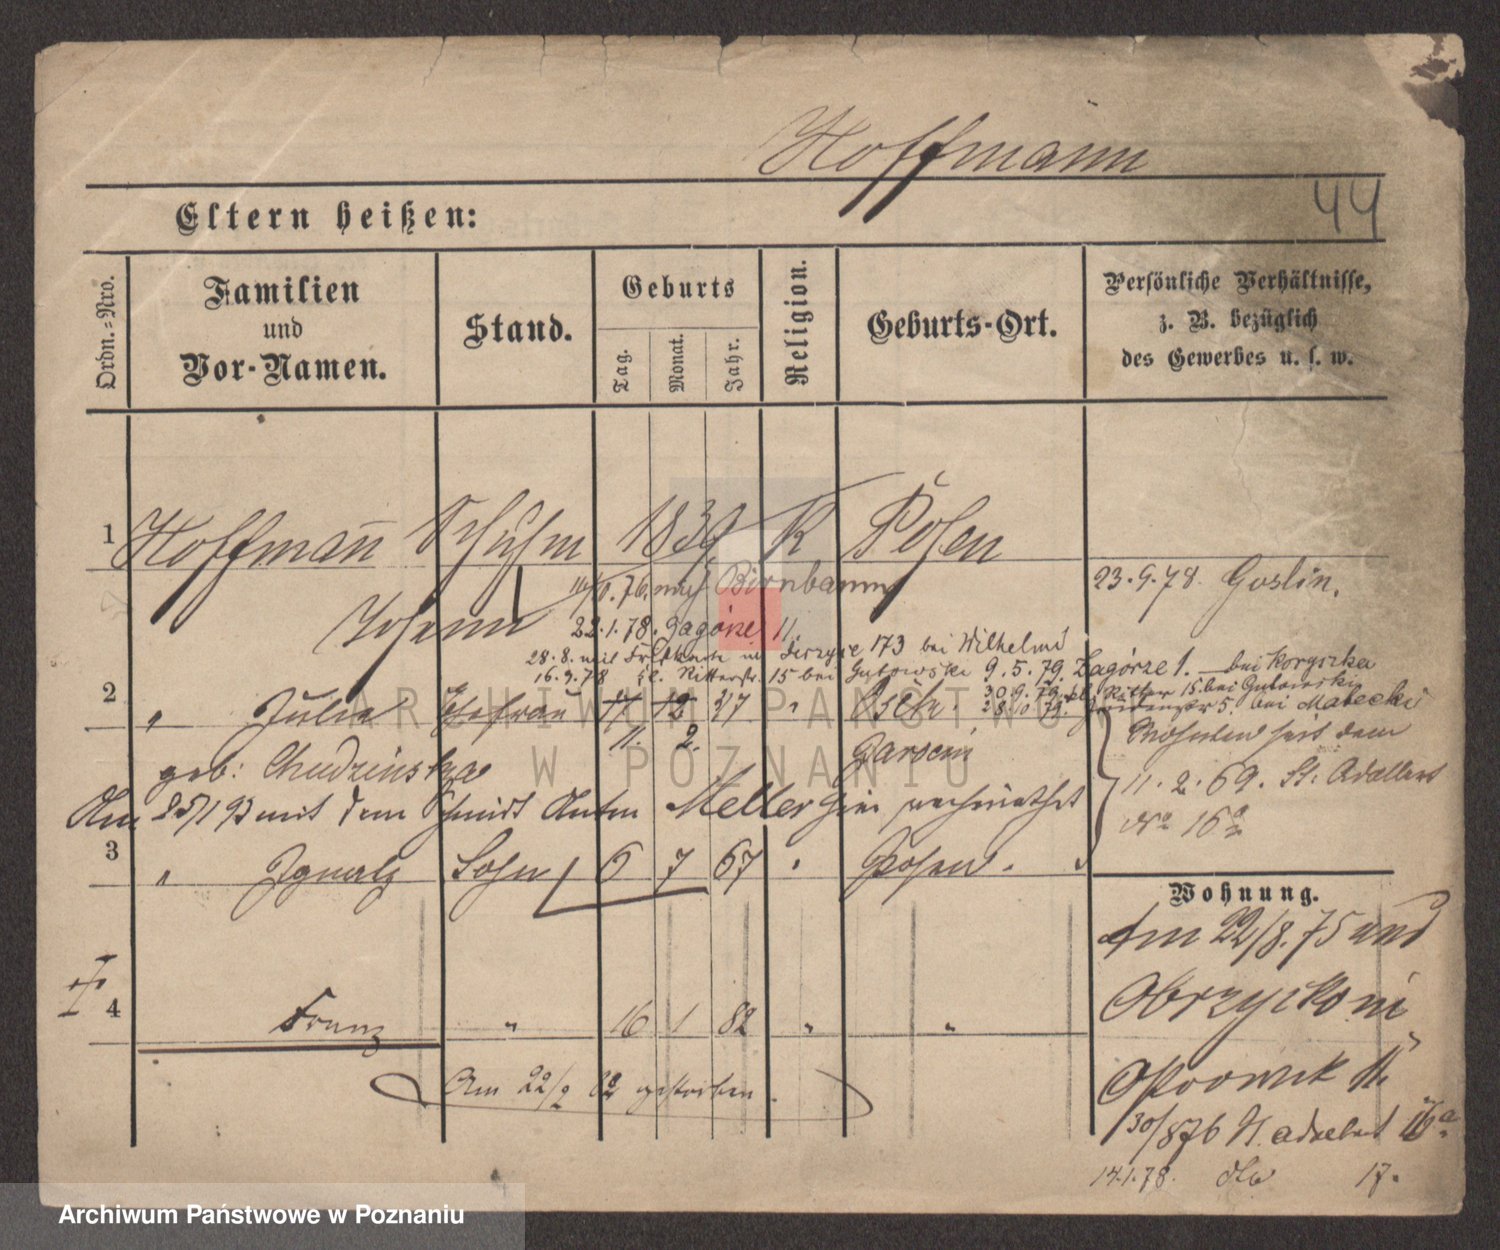 Hoffmann
44
Eltern heißen:
Ordn.=Nro.
Familien
und
Vor-Namen.
Stand.
Geburts
Tag.
Monat.
Jahr.
Religion.
Geburts-Ort.
Persönliche Verhältnisse,
z. B. bezüglich
des Gewerbes u. s. w.
1 Hoffmann 1839 K Posen
Johann
76. nach Birnbaum
23.9.78. Goslin.
22.1.78. Zagórze 11.
28.8. mit in 173 bei Wilhelmi
16.9.78 Kl. Ritterstr. 15 bei Gutowski 9.5.79. Zagórze 1. bei Koryszka
30.9.79. kl. Ritter 15. bei Gutowski
28. 79. 5. bei Malecki
2 " Julie Ehefrau 17 12 37 "
11. 2.
geb: Chudzinska
Wohnten seit dem
11.2.69. St. Adalbert
No 16a
Am 25/1 93 mit dem Schmidt Anton Meller hier
3 " Ignatz Sohn 6 7 67 " Posen.
Wohnung.
Am 22/8.75 nach
Obrzycko
4 Franz " 16 1 82 " "
Am 22/2 82 gestorben.
30/8 76 St. Adalbert 16a
14.1.78. 17.
ARCHIWUM PAŃSTWOWE
W POZNANIU
Archiwum Państwowe w Poznaniu